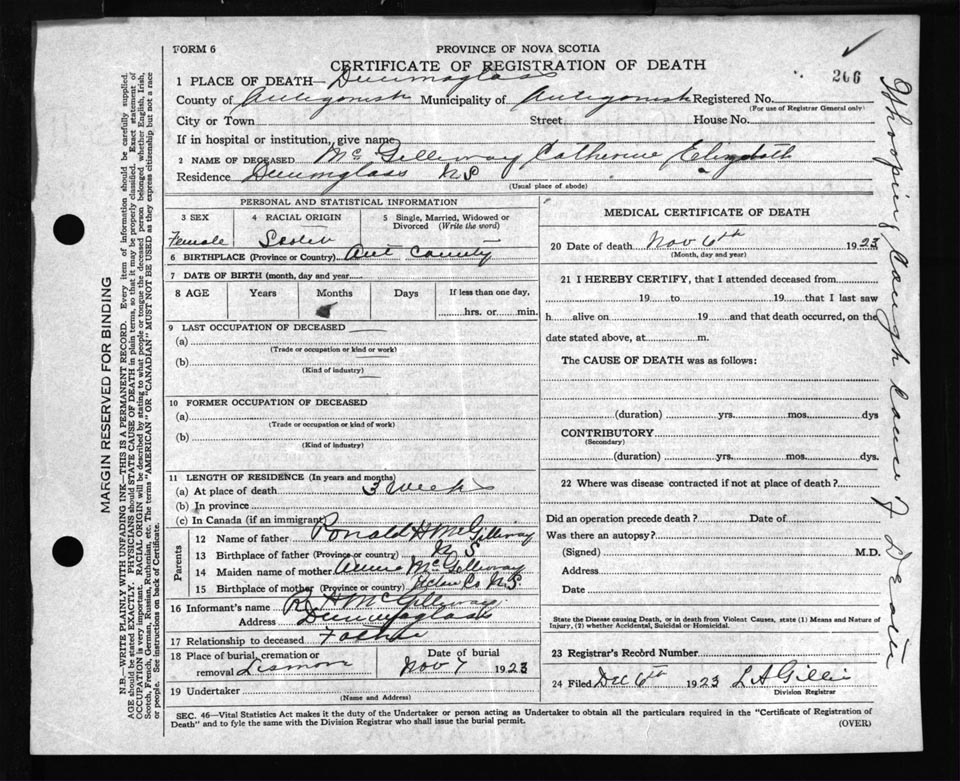 FORM 6
PROVINCE OF NOVA SCOTIA
CERTIFICATE OF REGISTRATION OF DEATH
266
1 PLACE OF DEATH— Dunmaglass
County of Antigonish Municipality of Antigonish Registered No.
(For use of Registrar General only)
City or Town Street House No.
If in hospital or institution, give name
2 NAME OF DECEASED McGillivray Catherine Elizabeth
Residence Dunmglass NS
(Usual place of abode)
PERSONAL AND STATISTICAL INFORMATION
3 SEX
Female
4 RACIAL ORIGIN
5 Single, Married, Widowed or Divorced (Write the word)
6 BIRTHPLACE (Province or Country) Ant County
7 DATE OF BIRTH (month, day and year
8 AGE Years Months Days If less than one day,
hrs. or min.
9 LAST OCCUPATION OF DECEASED
(a)
(Trade or occupation or kind or work)
(b)
(Kind of industry)
10 FORMER OCCUPATION OF DECEASED
(a)
(Trade or occupation or kind of work)
(b)
(Kind of industry)
11 LENGTH OF RESIDENCE (In years and months)
(a) At place of death 3 weeks
(b) In province
(c) In Canada (if an immigrant)
Parents
12 Name of father Ronald H McGillivray
13 Birthplace of father (Province or country) N S
14 Maiden name of mother Annie McGillivray
15 Birthplace of mother (Province or country) Co N.S.
16 Informant's name R H McGillivray
Address Dunmaglass
17 Relationship to deceased Father
18 Place of burial, cremation or
removal Lismore
Date of burial
Nov 7 1923
19 Undertaker
(Name and Address)
MEDICAL CERTIFICATE OF DEATH
20 Date of death Nov 6th 1923
(Month, day and year)
21 I HEREBY CERTIFY, that I attended deceased from
19 to 19 that I last saw
h alive on 19 and that death occurred, on the
date stated above, at m.
The CAUSE OF DEATH was as follows:
(duration) yrs. mos. dys
CONTRIBUTORY
(Secondary)
(duration) yrs. mos. dys.
22 Where was disease contracted if not at place of death?
Did an operation precede death? Date of
Was there an autopsy?
(Signed) M.D.
Address
Date
State the Disease causing Death, or in death from Violent Causes, state (1) Means and Nature of
Injury, (2) whether Accidental, Suicidal or Homicidal.
23 Registrar's Record Number
24 Filed Dec 6th 1923 L A Gillis
Division Registrar
SEC. 46—Vital Statistics Act makes it the duty of the Undertaker or person acting as Undertaker to obtain all the particulars required in the "Certificate of Registration of
Death" and to fyle the same with the Division Registrar who shall issue the burial permit.
(OVER)
Whooping Cough Cause of Death
MARGIN RESERVED FOR BINDING
N.B.—WRITE PLAINLY WITH UNFADING INK—THIS IS A PERMANENT RECORD. Every item of information should be carefully supplied.
AGE should be stated EXACTLY. PHYSICIANS should STATE CAUSE OF DEATH in plain terms, so that it may be properly classified. Exact statement of
OCCUPATION is very important. RACIAL ORIGIN will be described by stating to what people or tongue the deceased person belonged whether English, Irish,
Scotch, French, German, Russian, Ruthenian, etc. The terms "AMERICAN" OR "CANADIAN" MUST NOT BE USED as they express citizenship but not a race
or people. See instructions on back of Certificate.